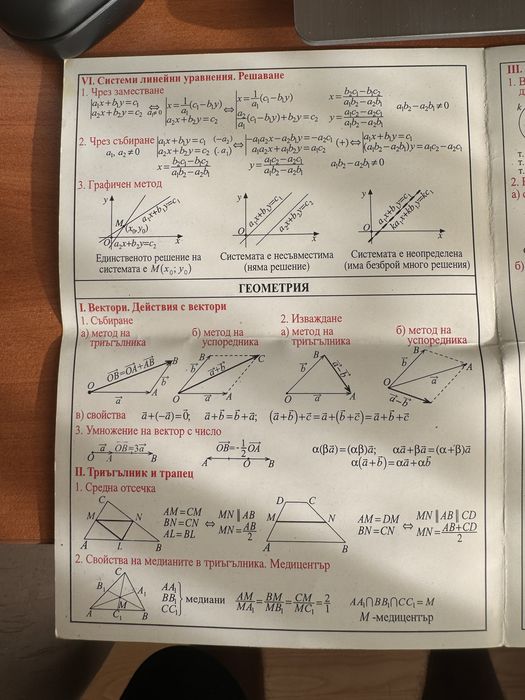 VI. Системи линейни уравнения. Решаване
1. Чрез заместване
a₁x+b₁y=c₁
a₂x+b₂y=c₂ a₁≠0 ⇔ x=1/a₁(c₁-b₁y)
a₂x+b₂y=c₂ ⇔ x=1/a₁(c₁-b₁y)
a₂/a₁(c₁-b₁y)+b₂y=c₂
x=(b₂c₁-b₁c₂)/(a₁b₂-a₂b₁)
y=(a₁c₂-a₂c₁)/(a₁b₂-a₂b₁) a₁b₂-a₂b₁≠0
2. Чрез събиране
a₁, a₂≠0
a₁x+b₁y=c₁ (-a₂)
a₂x+b₂y=c₂ (.a₁) ⇔ -a₁a₂x-a₂b₁y=-a₂c₁
a₁a₂x+a₁b₂y=a₁c₂ (+) ⇔ a₁x+b₁y=c₁
(a₁b₂-a₂b₁)y=a₁c₂-a₂c₁
x=(b₂c₁-b₁c₂)/(a₁b₂-a₂b₁) y=(a₁c₂-a₂c₁)/(a₁b₂-a₂b₁) a₁b₂-a₂b₁≠0
3. Графичен метод
y M (x₀,y₀) a₁x+b₁y=c₁ a₂x+b₂y=c₂ O x
y a₁x+b₁y=c₁ a₂x+b₂y=c₂ O x
y a₁x+b₁y=c₁ ka₁x+kb₁y=kc₁ O x
Единственото решение на
системата е M(x₀; y₀)
Системата е несъвместима
(няма решение)
Системата е неопределена
(има безброй много решения)
ГЕОМЕТРИЯ
I. Вектори. Действия с вектори
1. Събиране
а) метод на
триъгълника
б) метод на
успоредника
2. Изваждане
а) метод на
триъгълника
б) метод на
успоредника
O A B OB=OA+AB a b
O A B C a b a+b
O A B a b a-b
O A B a b a-b
в) свойства a+(-a)=0; a+b=b+a; (a+b)+c=a+(b+c)=a+b+c
3. Умножение на вектор с число
a OB=3a
O A B
OB=-1/2 OA
A O B
α(βa)=(αβ)a; αa+βa=(α+β)a
α(a+b)=αa+αb
II. Триъгълник и трапец
1. Средна отсечка
C M N A L B
AM=CM
BN=CN
AL=BL
⇔ MN∥AB
MN=AB/2
D C M N A B
AM=DM
BN=CN
⇔ MN∥AB∥CD
MN=(AB+CD)/2
2. Свойства на медианите в триъгълника. Медицентър
C B₁ A₁ M A C₁ B
AA₁
BB₁
CC₁
медиани
AM/MA₁=BM/MB₁=CM/MC₁=2/1
AA₁∩BB₁∩CC₁=M
M -медицентър
III.